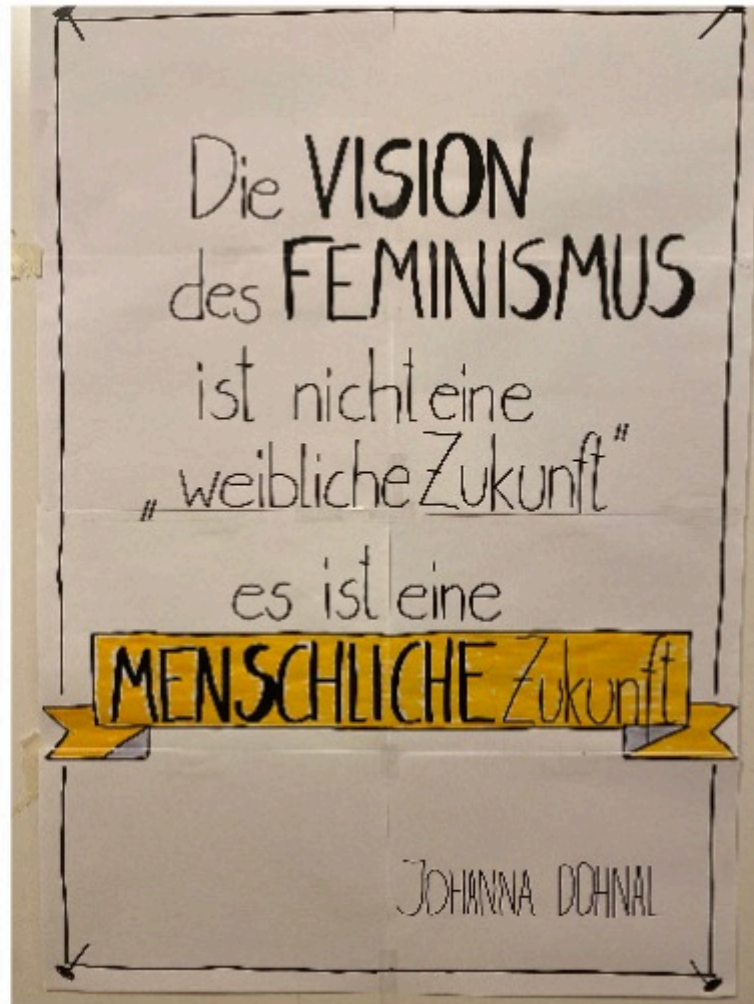 Die VISION
des FEMINISMUS
ist nicht eine
„weibliche Zukunft"
es ist eine
MENSCHLICHE Zukunft
JOHANNA DOHNAL